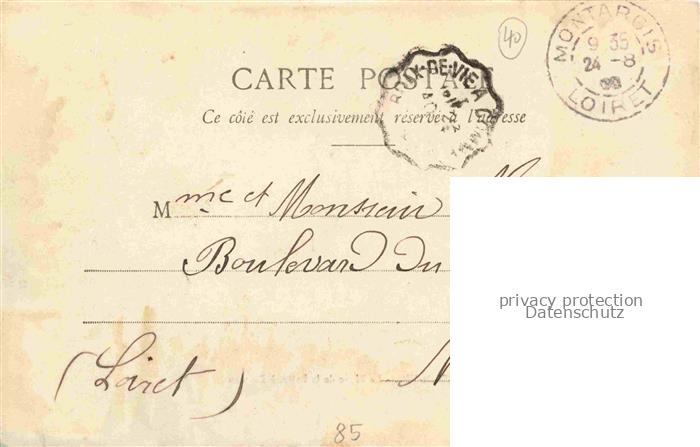 40
MONTARGIS
9 35
24 -8
LOIRET
CARTE POSTALE
Ce côté est exclusivement réservé à l'adresse
Mme et Monsieur
Boulevard du
privacy protection
Datenschutz
(Loiret)
85